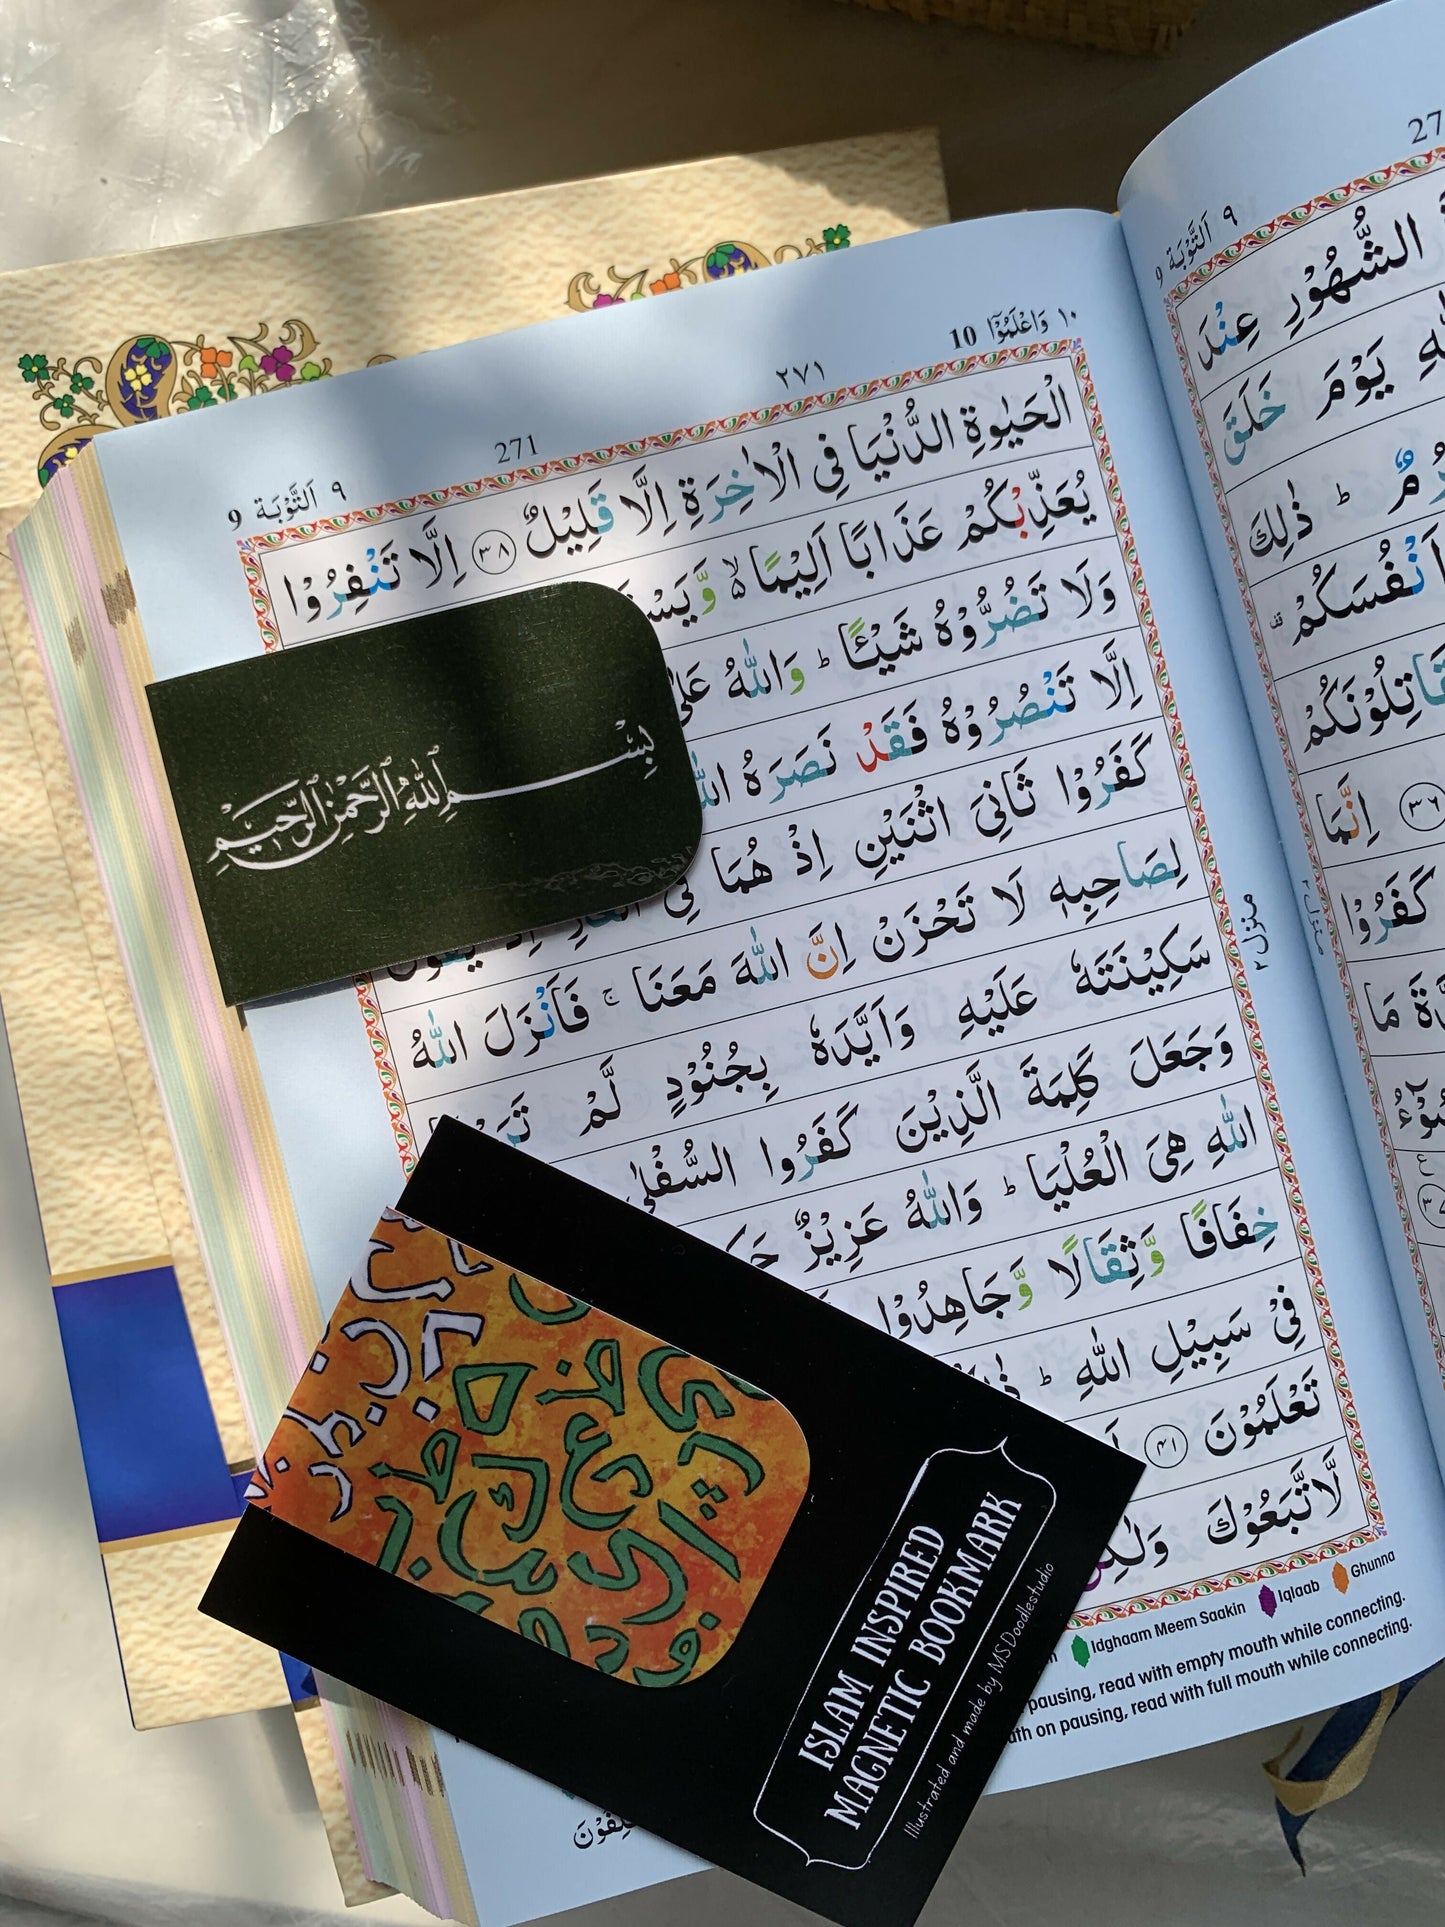 ١٠ وَاعْلَمُوْۤا 10
٢٧١
271
٩ اَلتَّوْبَة 9
الْحَيٰوةِ الدُّنْيَا فِى الْاٰخِرَةِ اِلَّا قَلِيْلٌ ٣٨ اِلَّا تَنْفِرُوْا
يُعَذِّبْكُمْ عَذَابًا اَلِيْمًا ۙ۬ وَّيَسْ
وَلَا تَضُرُّوْهُ شَيْـًٔا ؕ وَاللّٰهُ عَلٰى
اِلَّا تَنْصُرُوْهُ فَقَدْ نَصَرَهُ اللّٰ
كَفَرُوْا ثَانِىَ اثْنَيْنِ اِذْ هُمَا فِى الْغَارِ اِذْ يَقُوْلُ
لِصَاحِبِهٖ لَا تَحْزَنْ اِنَّ اللّٰهَ مَعَنَا ۚ فَاَنْزَلَ اللّٰهُ
سَكِيْنَتَهٗ عَلَيْهِ وَاَيَّدَهٗ بِجُنُوْدٍ لَّمْ تَرَوْهَا
وَجَعَلَ كَلِمَةَ الَّذِيْنَ كَفَرُوا السُّفْلٰى
اللّٰهِ هِىَ الْعُلْيَا ؕ وَاللّٰهُ عَزِيْزٌ حَكِ
خِفَافًا وَّثِقَالًا وَّجَاهِدُوْا
فِىْ سَبِيْلِ اللّٰهِ ؕ
تَعْلَمُوْنَ ٤١
لَّاتَّبَعُوْكَ وَلٰكِنْۢ
منزل ٢
Idghaam Meem Saakin Iqlaab Ghunna
pausing, read with empty mouth while connecting.
on pausing, read with full mouth while connecting.
بِسْمِ اللّٰهِ الرَّحْمٰنِ الرَّحِيْمِ
ISLAM INSPIRED
MAGNETIC BOOKMARK
Illustrated and made by MS.Doodlestudio
27
٩ اَلتَّوْبَة 9
الشُّهُوْرِ عِنْدَ
يَوْمَ خَلَقَ
مٌ ؕ ذٰلِكَ
اَنْفُسَكُمْ
قَاتِلُوْنَكُمْ
٣٦ اِنَّمَا
كَفَرُوْا
مَا
منزل ٢